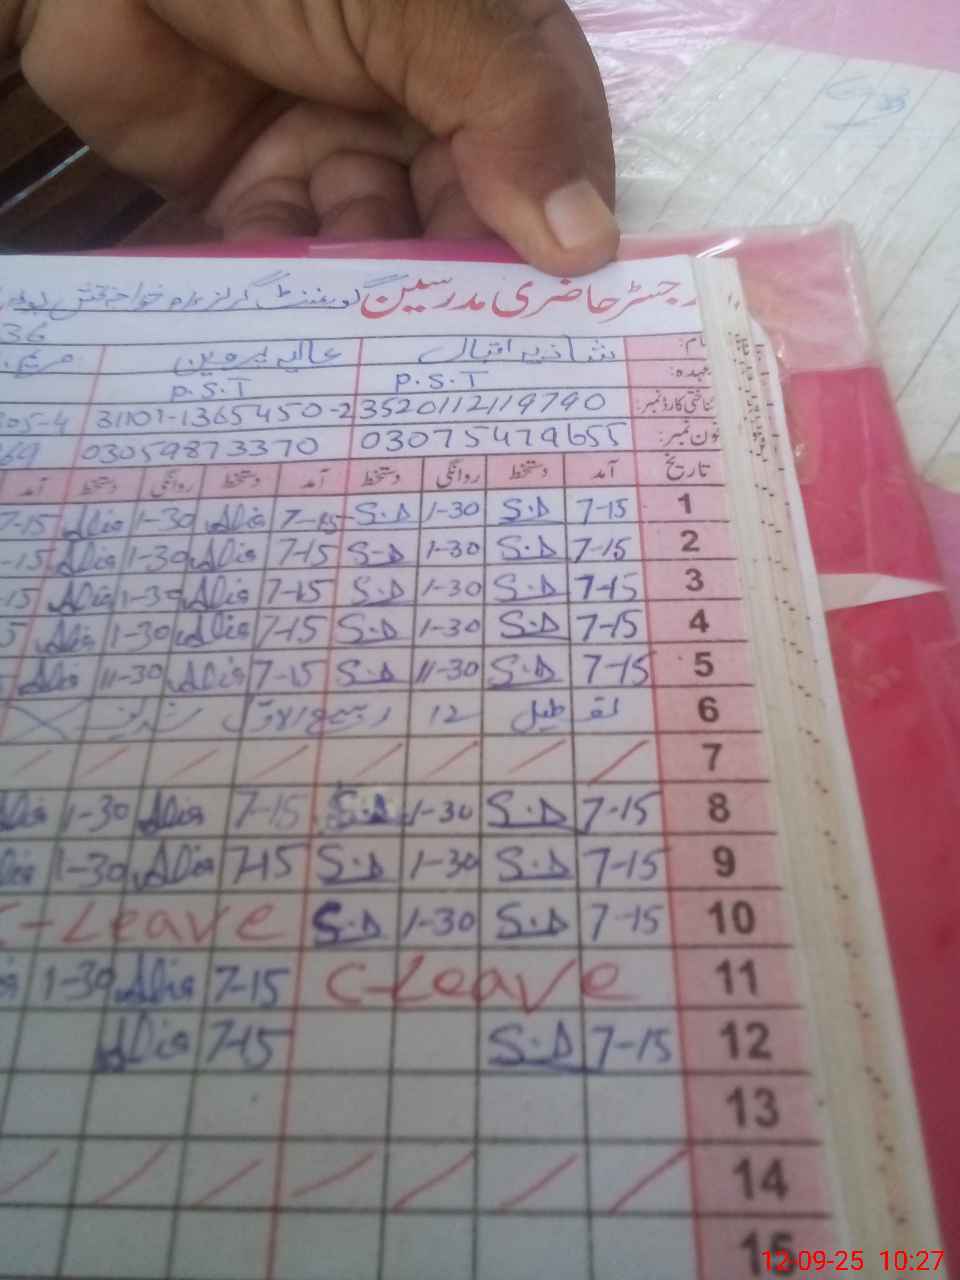 رجسٹر حاضری مدرسین گورنمنٹ گرلز
36
نام: شازیہ اقبال عالیہ پروین مریم
عہدہ: P.S.T P.S.T
شناختی کارڈ نمبر: 3520112119790 31101-1365450-2 305-4
فون نمبر: 03075479655 03059873370 69
تاریخ آمد دستخط روانگی دستخط آمد دستخط روانگی دستخط آمد
1 7-15 S.D 1-30 S.D 7-15 Alia 1-30 Alia 7-15
2 7-15 S.D 1-30 S-D 7-15 Alia 1-30 Alia -15
3 7-15 S.D 1-30 S.D 7-15 Alia 1-30 Alia -15
4 7-15 S.D 1-30 S.D 7-15 Alia 1-30 Alia 5
5 7-15 S.D 11-30 S.D 7-15 Alia 11-30 Alia
6 تعطیل 12 ربیع الاول
7
8 7-15 S.D 1-30 S.D 7-15 Alia 1-30 Alia
9 7-15 S.D 1-30 S.D 7-15 Alia 1-30 Alia
10 7-15 S.D 1-30 S.D C-Leave
11 C-Leave 7-15 Alia 1-30
12 7-15 S.D 7-15 Alia
13
14
15
12-09-25 10:27